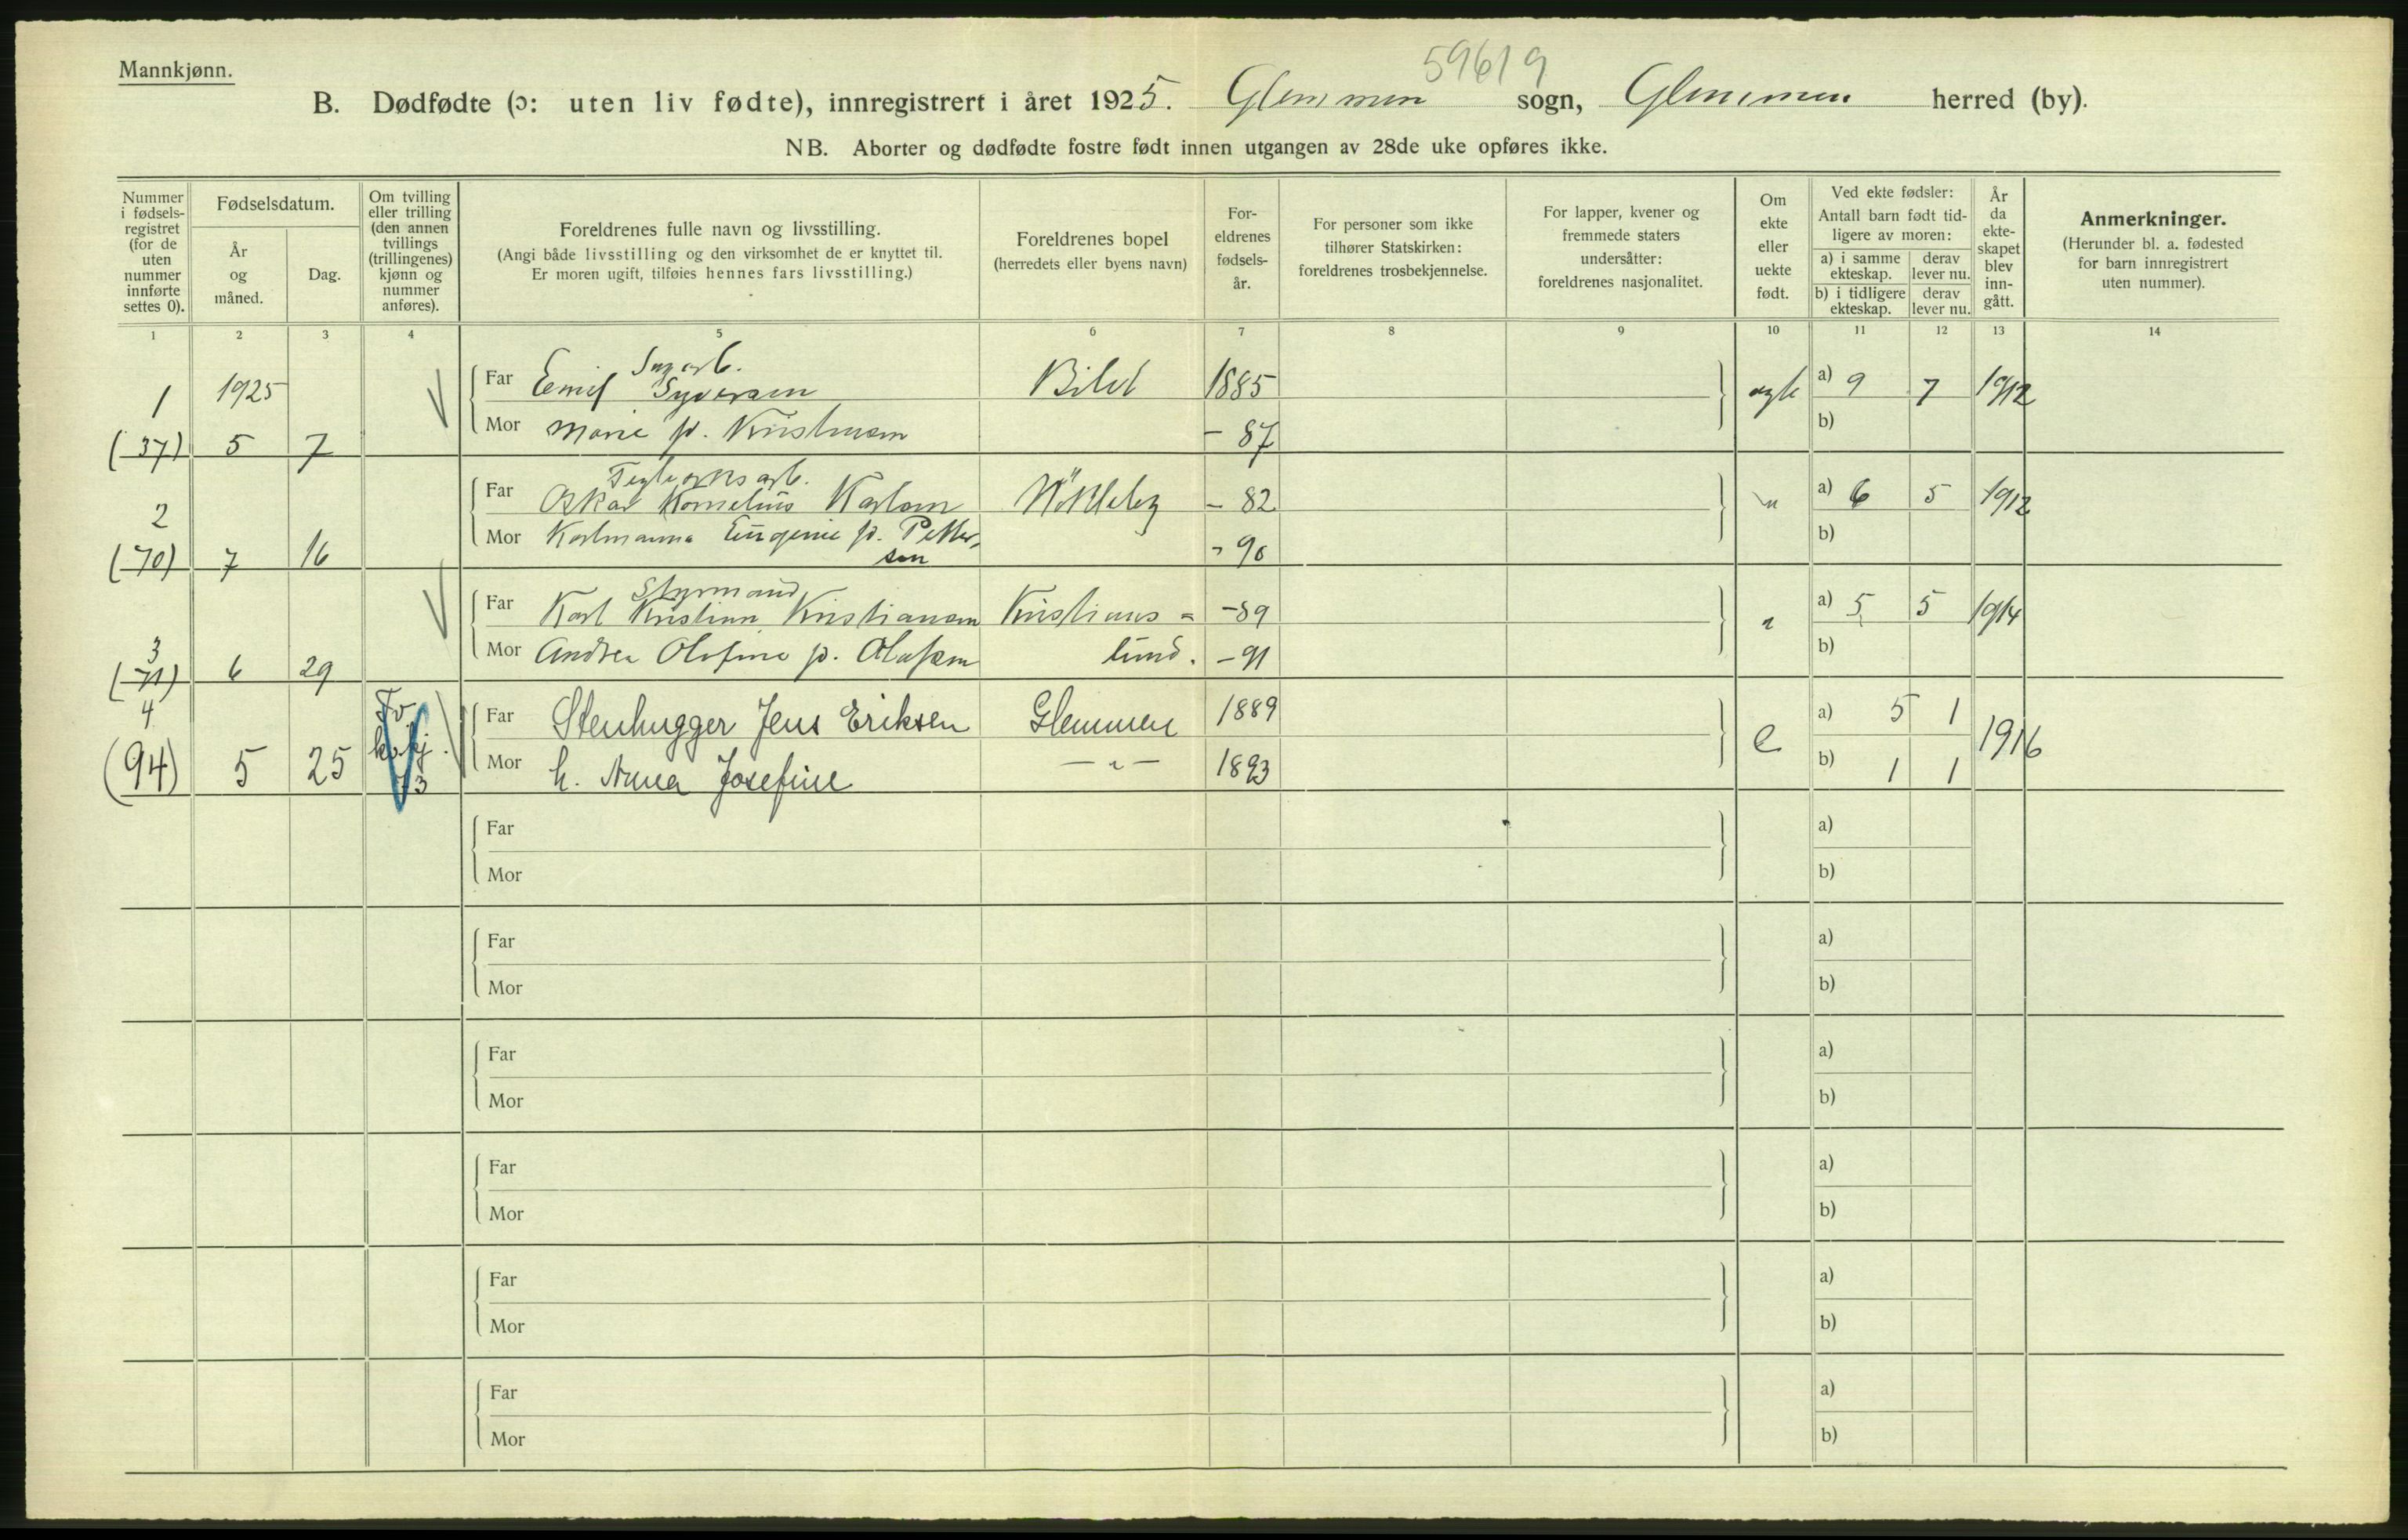 Mannkjønn.
59619
B. Dødfødte (ɔ: uten liv fødte), innregistrert i året 1925. Glemmen sogn, Glemmen herred (by).
NB. Aborter og dødfødte fostre født innen utgangen av 28de uke opføres ikke.
Nummer i fødsels-registret (for de uten nummer innførte settes 0).
Fødselsdatum.
År og måned.
Dag.
Om tvilling eller trilling (den annen tvillings (trillingenes) kjønn og nummer anføres).
Foreldrenes fulle navn og livsstilling.
(Angi både livsstilling og den virksomhet de er knyttet til.
Er moren ugift, tilføies hennes fars livsstilling.)
Foreldrenes bopel
(herredets eller byens navn)
For-eldrenes fødsels-år.
For personer som ikke tilhører Statskirken: foreldrenes trosbekjennelse.
For lapper, kvener og fremmede staters undersåtter: foreldrenes nasjonalitet.
Om ekte eller uekte født.
Ved ekte fødsler:
Antall barn født tid-ligere av moren:
a) i samme ekteskap.
derav lever nu.
b) i tidligere ekteskap.
derav lever nu.
År da ekte-skapet blev inn-gått.
Anmerkninger.
(Herunder bl. a. fødested for barn innregistrert uten nummer).
1 2 3 4 5 6 7 8 9 10 11 12 13 14
Sagarb.
1 1925 Far Emil Syversen 1885 a) 9 7 1912
(37) 5 7 Mor Marie f. Kristensen - 87 b)
Teglverksarb.
2 Far Oskar Kornelius Karlsen - 82 " a) 6 5 1912
(70) 7 16 Mor Eugenie f. Petter-sen - 90 b)
Styrmand
3 Far Karl Kristian Kristiansen Kristians= - 89 " a) 5 5 1914
(71) 6 29 Mor Andrea Olufine f. Olafsen lund. - 91 b)
4 Tv. Far Stenhugger Jens Eriksen Glemmen 1889 e a) 5 1 1916
(94) 5 25 kv.kj. 73 Mor h. Anna Josefine — " — 1893 b) 1 1
Far a)
Mor b)
Far a)
Mor b)
Far a)
Mor b)
Far a)
Mor b)
Far a)
Mor b)
Far a)
Mor b)